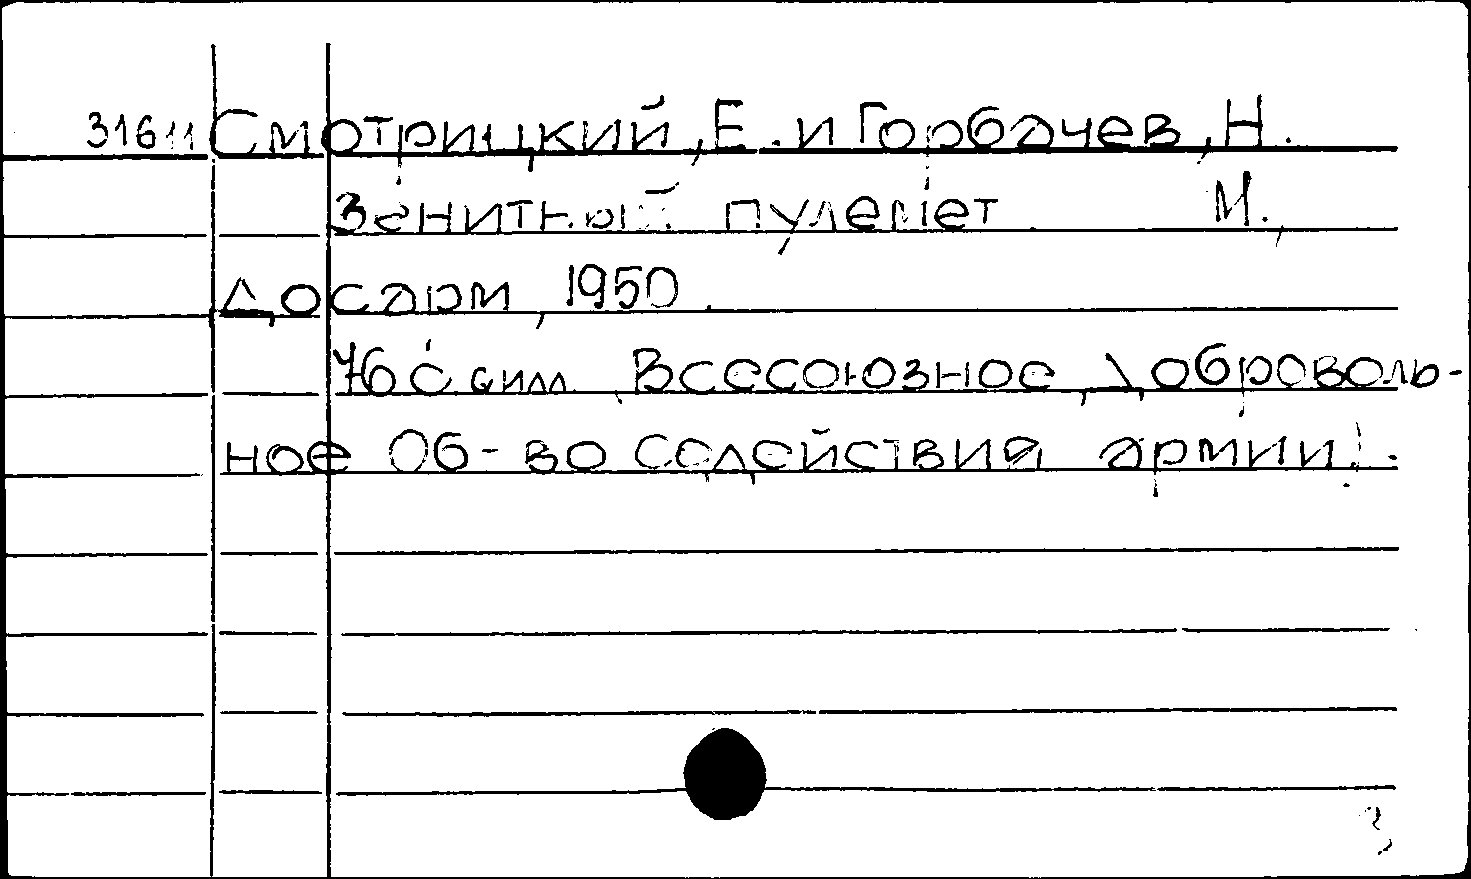 31611 Смотрицкий, Е. и Горбачев, Н.
Зенитный пулемет М.,
Досарм, 1950.
76 с. с илл. Всесоюзное Доброволь-
ное Об-во Содействия армии).
3